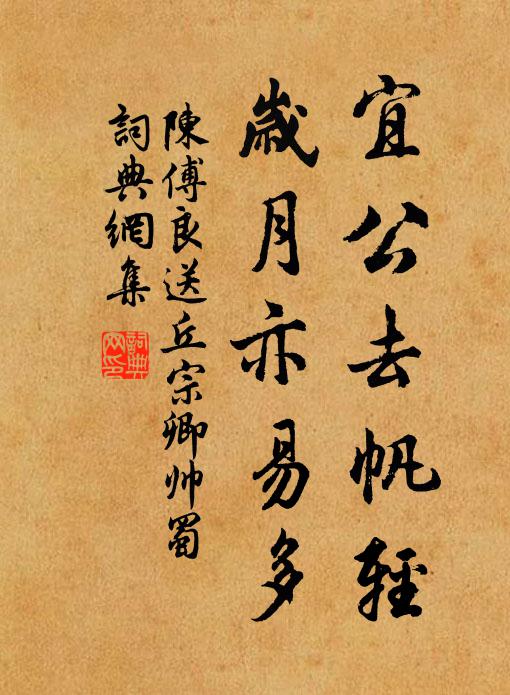 宜公去帆輕
歲月亦易多
陳傅良送丘宗卿帅蜀
詞典網集
詞典网印